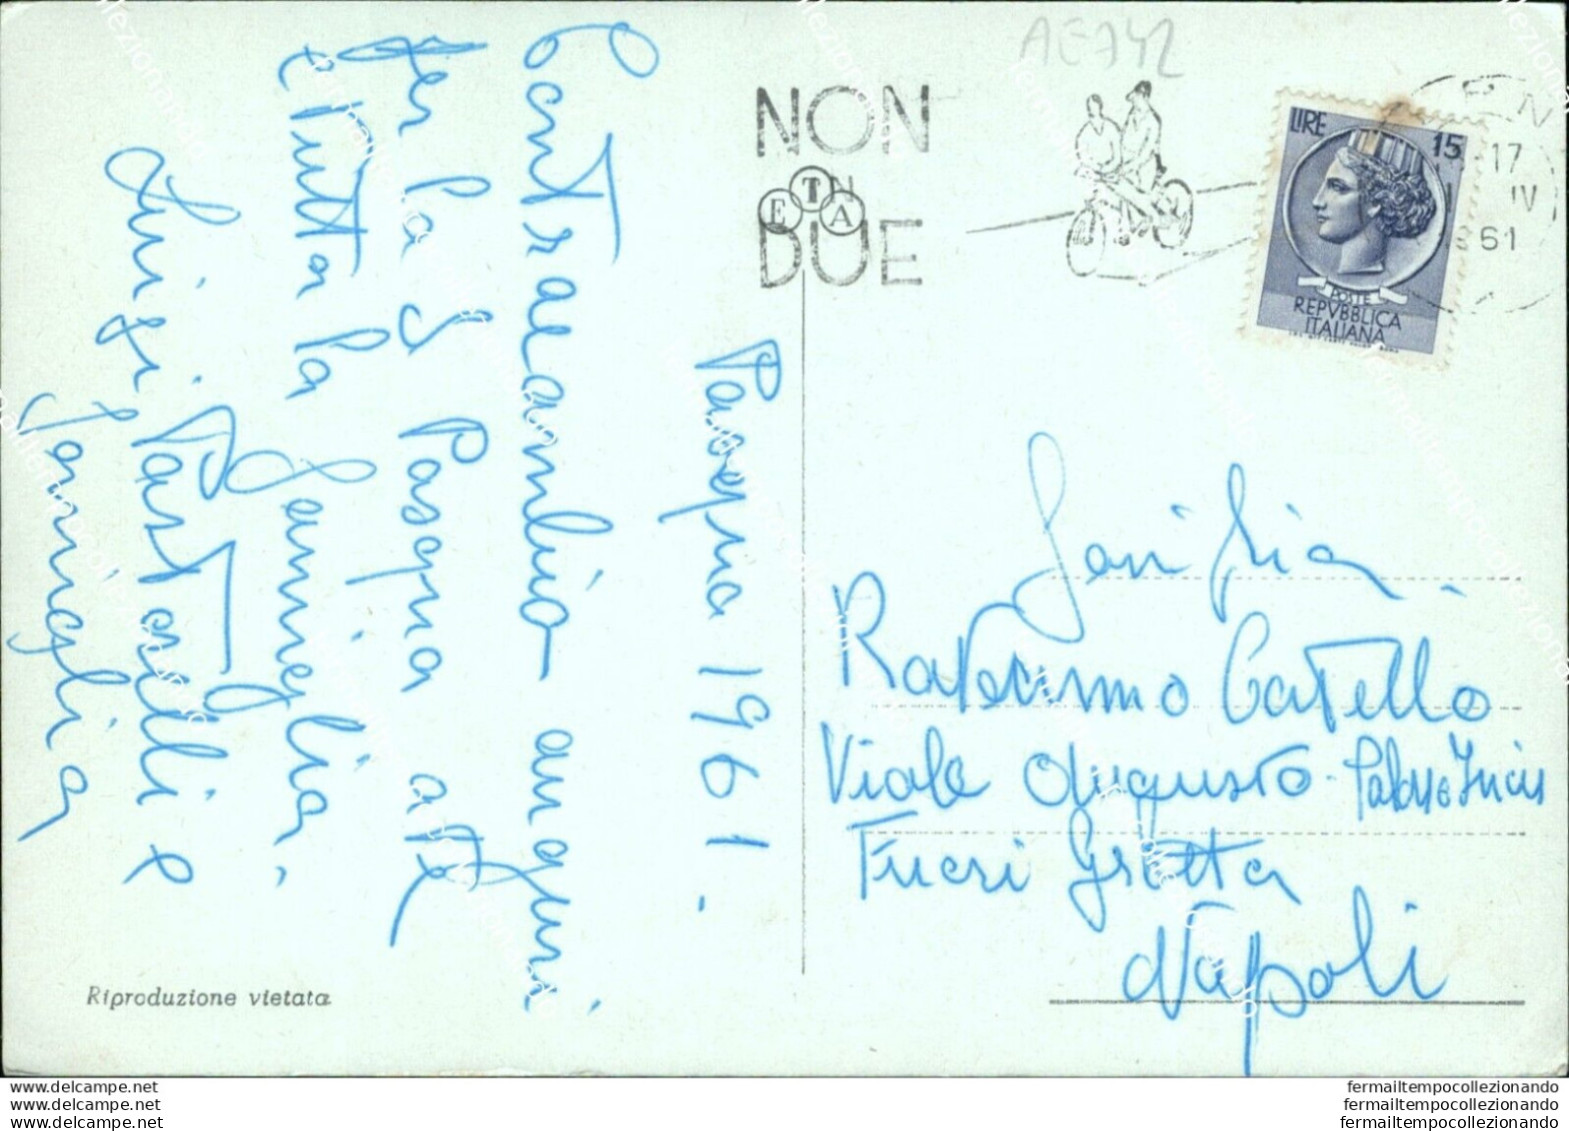 AE742
NON
IN
DUE
ETA
LIRE 15
POSTE
REPVBBLICA
ITALIANA
17
IV
61
Pasqua 1961.
Contracambio auguri
per la S Pasqua a te
e tutta la famiglia.
Luigi Pastorelli e
famiglia
Famiglia
Catello
Viale Augusto
Fuori Grotta
Napoli
Riproduzione vietata
www.delcampe.net
www.delcampe.net
www.delcampe.net
fermailtempocollezionando
fermailtempocollezionando
fermailtempocollezionando